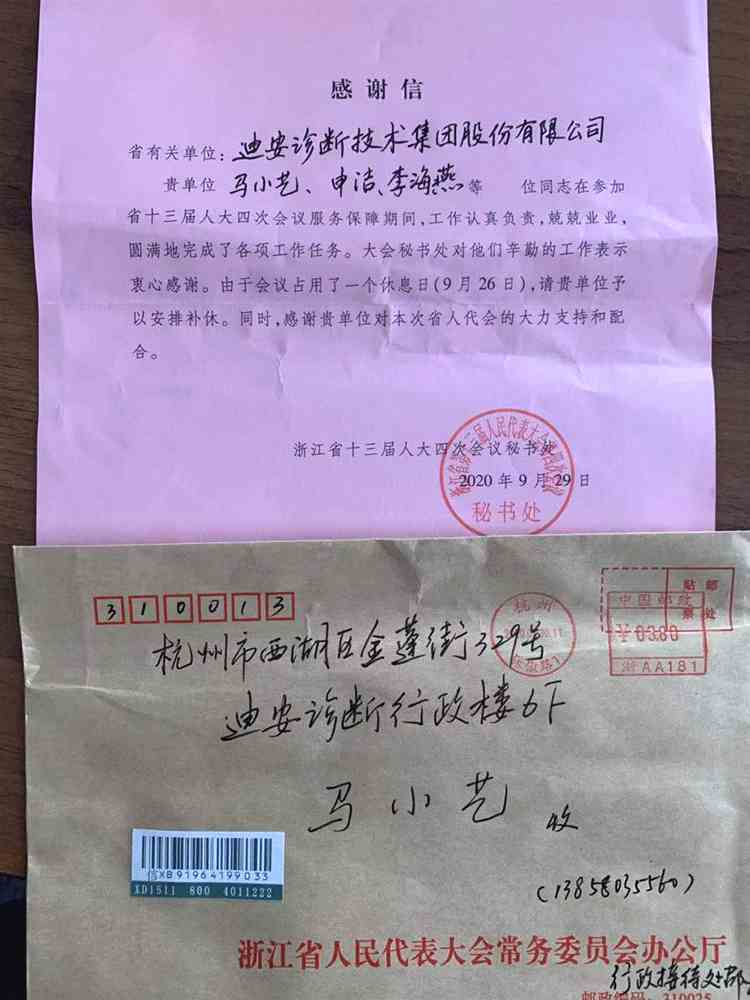 感谢信
省有关单位：迪安诊断技术集团股份有限公司
贵单位 马小艺、申洁、李海燕等 位同志在参加
省十三届人大四次会议服务保障期间，工作认真负责，兢兢业业，
圆满地完成了各项工作任务。大会秘书处对他们辛勤的工作表示
衷心感谢。由于会议占用了一个休息日(9月26日)，请贵单位予
以安排补休。同时，感谢贵单位对本次省人代会的大力支持和配
合。
浙江省十三届人大四次会议秘书处
2020年9月29日
秘书处
310013
杭州市西湖区金蓬街329号
迪安诊断行政楼6F
马小艺 收
(13858035560)
杭州
贴邮
票处
中国邮政
¥0380
浙AA181
信XB91964199033
XD1511 800 4011222
浙江省人民代表大会常务委员会办公厅
行政接待处
邮政编码